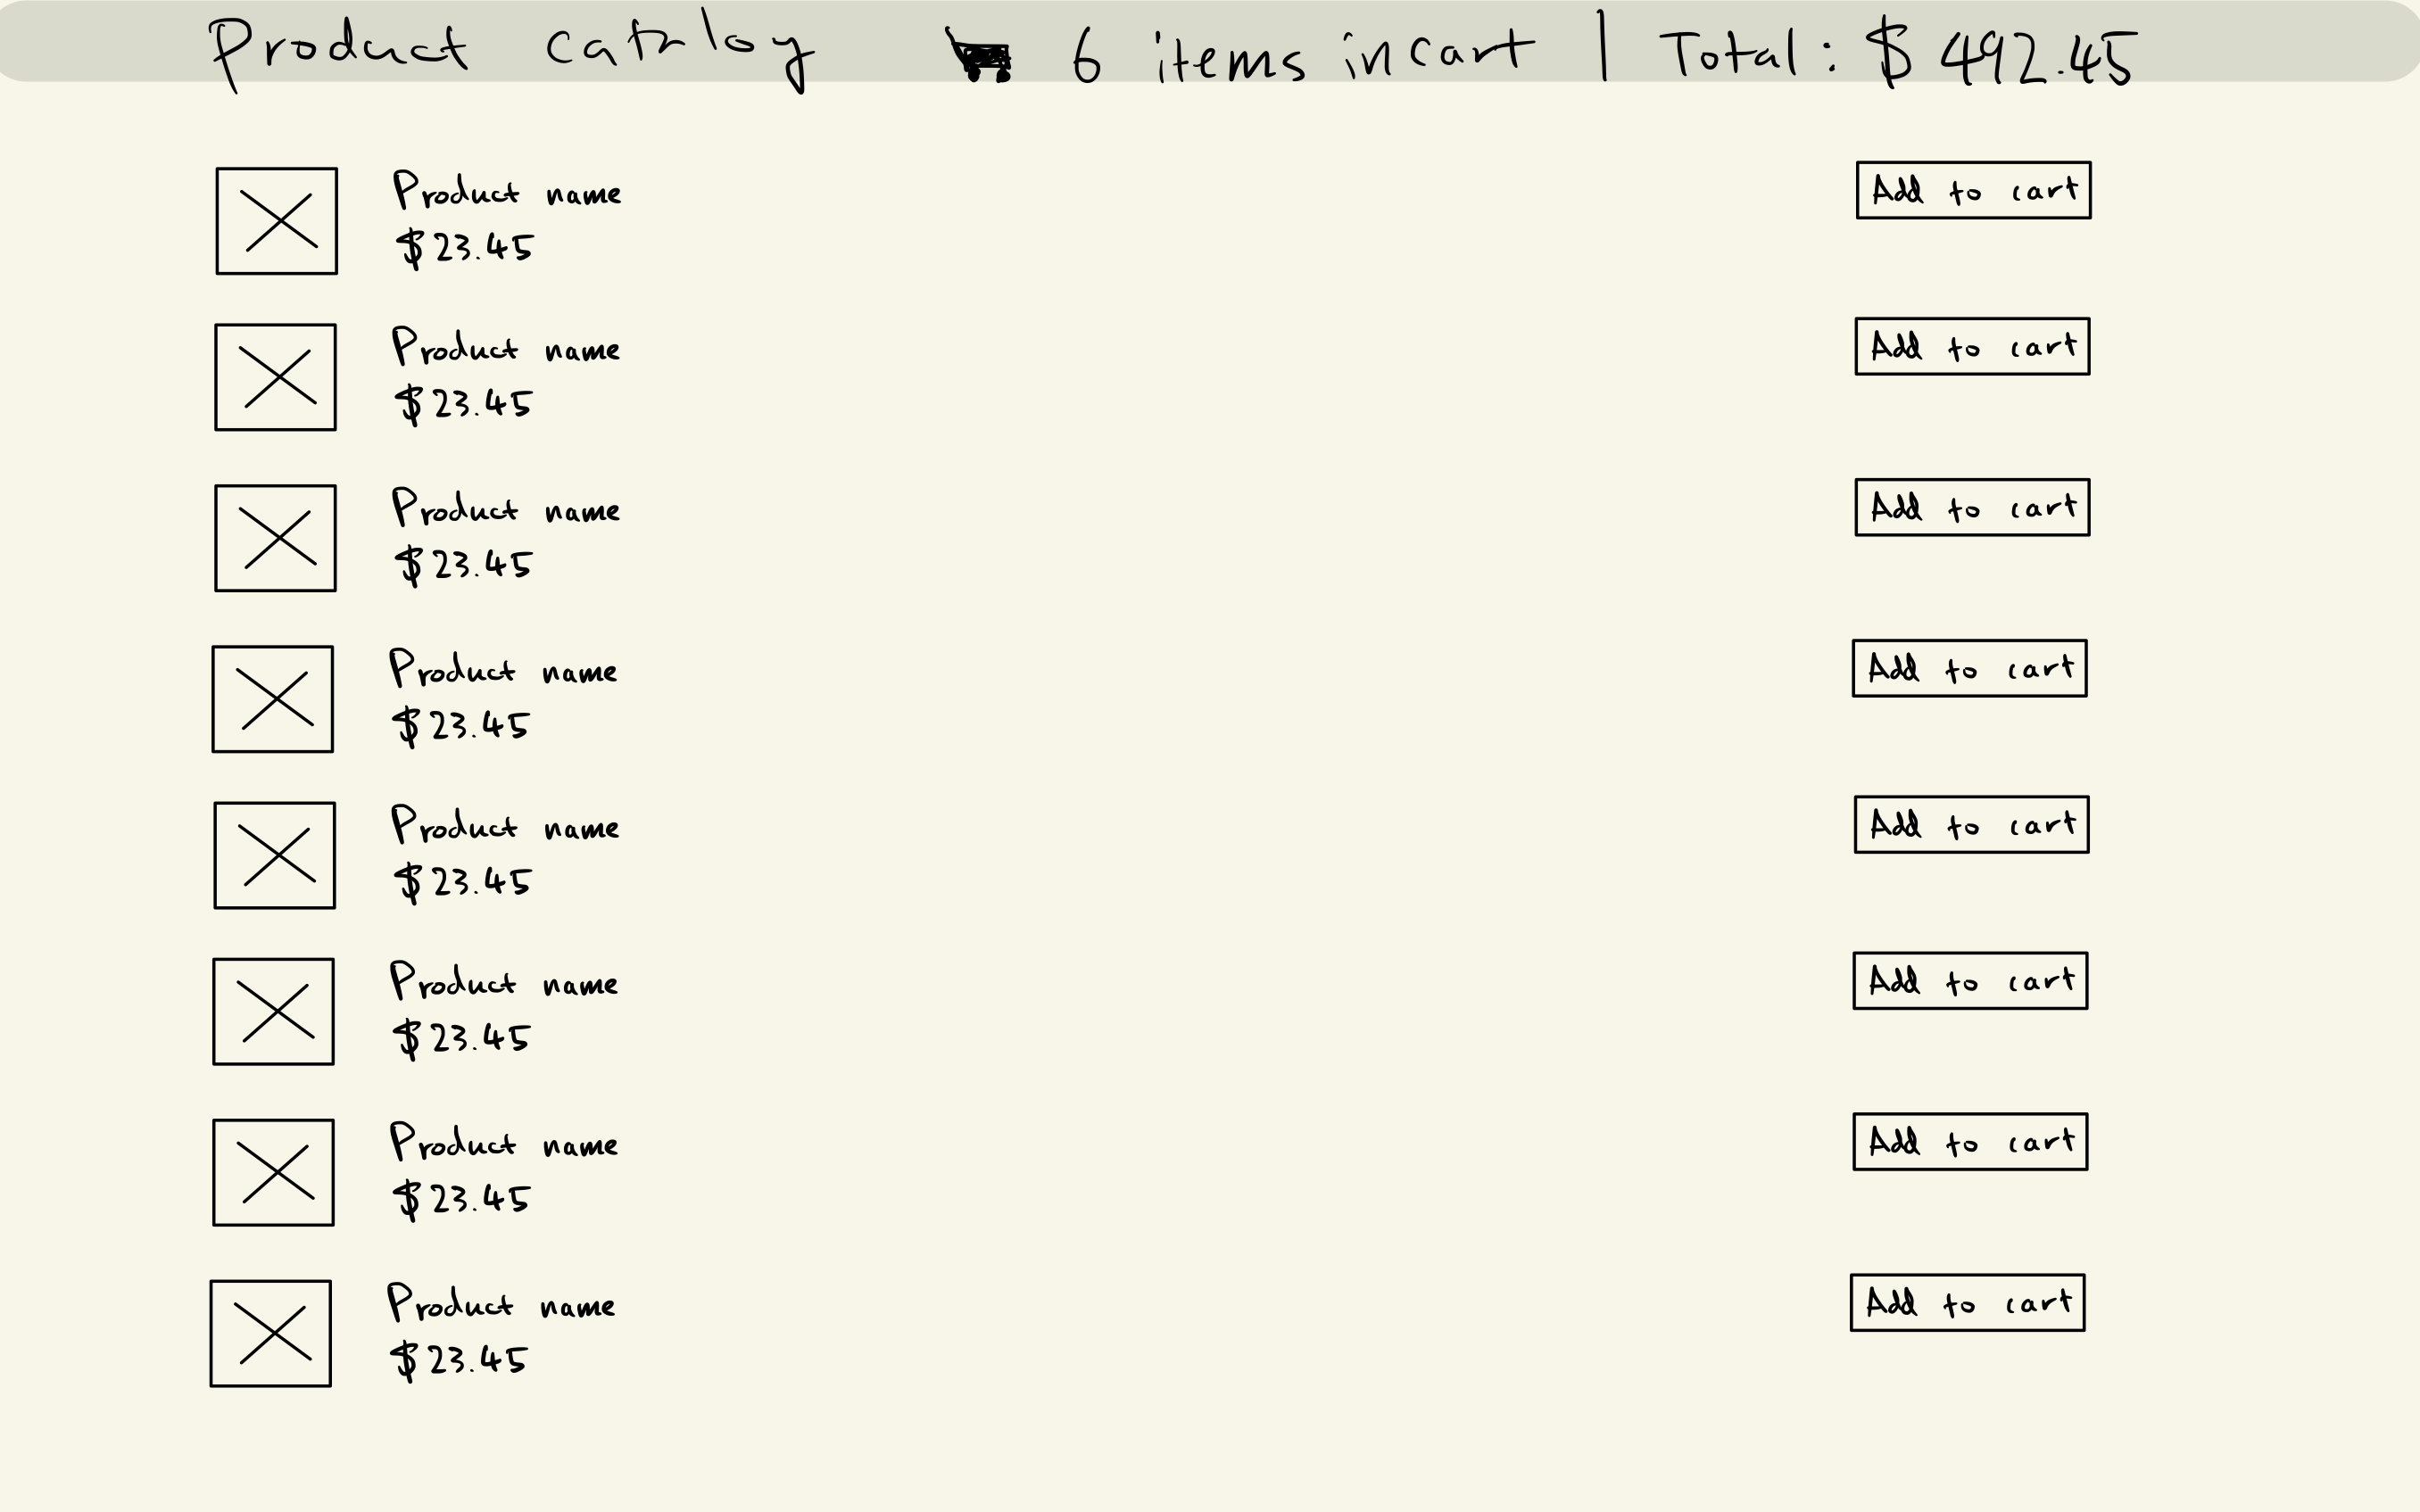 Product catalog 6 items in cart | Total: $492.45
Product name
$23.45
Add to cart
Product name
$23.45
Add to cart
Product name
$23.45
Add to cart
Product name
$23.45
Add to cart
Product name
$23.45
Add to cart
Product name
$23.45
Add to cart
Product name
$23.45
Add to cart
Product name
$23.45
Add to cart